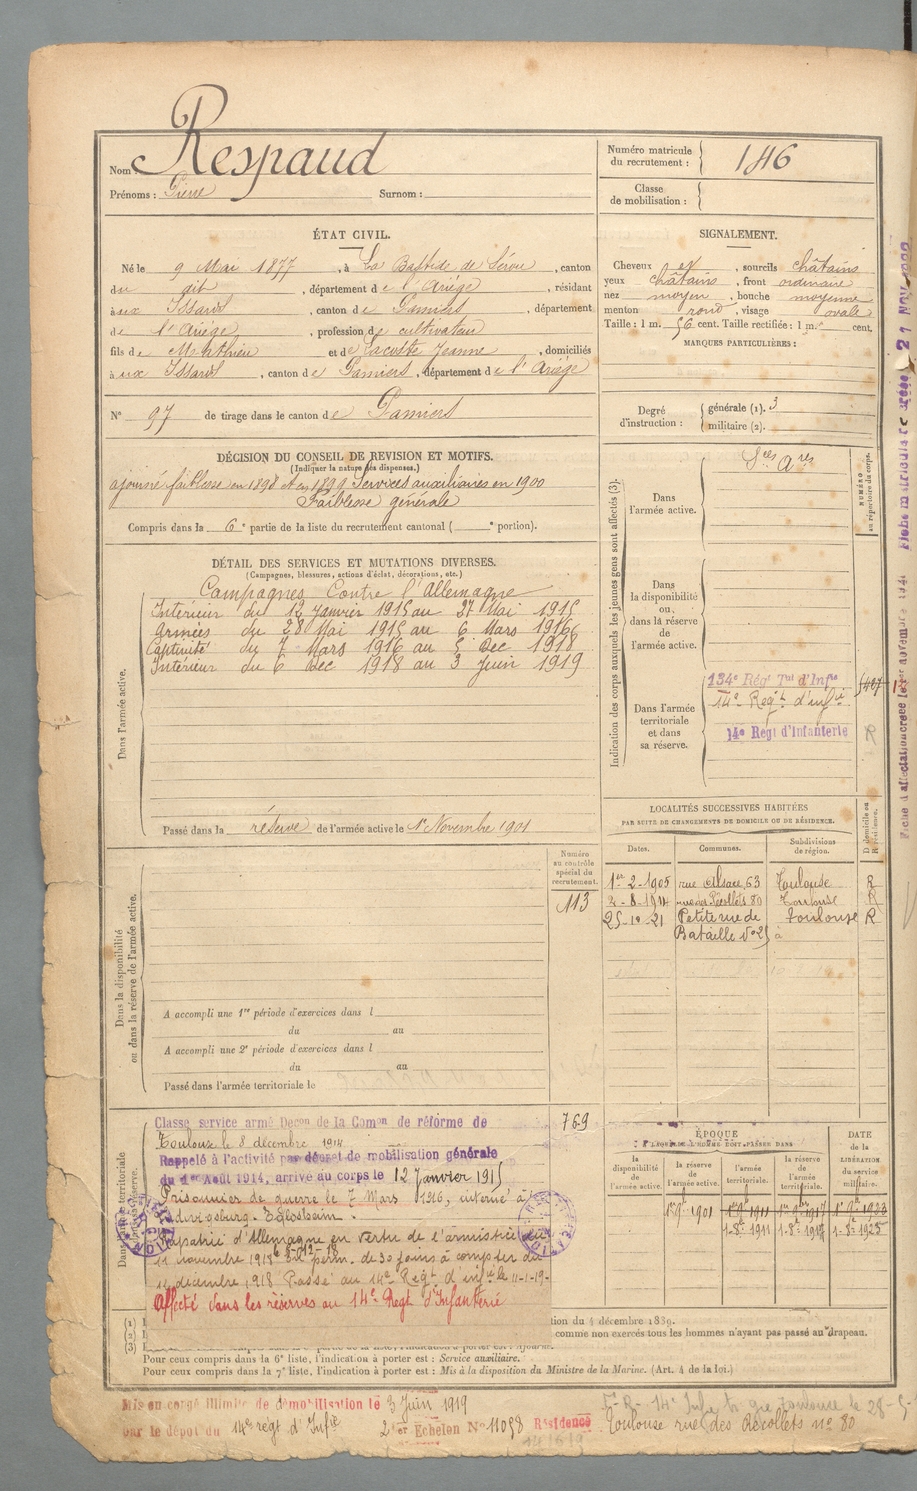 Nom Respaud
Prénoms : Pierre Surnom :
Numéro matricule du recrutement : 146
Classe de mobilisation :
ÉTAT CIVIL.
Né le 9 Mai 1877, à La Bastide de Sérou, canton
du dit, département de l'Ariége, résidant
aux Issards, canton de Pamiers, département
de l'Ariége, profession de cultivateur
fils de Mathieu et de Lacoste Jeanne, domiciliés
aux Issards, canton de Pamiers, département de l'Ariége
N° 97 de tirage dans le canton de Pamiers
SIGNALEMENT.
Cheveux et, sourcils châtains
yeux châtains, front ordinaire
nez moyen, bouche moyenne
menton rond, visage ovale
Taille : 1 m. 56 cent. Taille rectifiée : 1 m. cent.
MARQUES PARTICULIÈRES :
Degré d'instruction : générale (1). 3
militaire (2).
DÉCISION DU CONSEIL DE REVISION ET MOTIFS.
(Indiquer la nature des dispenses.)
ajourné faiblesse en 1898 et en 1899 Services auxiliaires en 1900
Faiblesse générale
Compris dans la 6e partie de la liste du recrutement cantonal ( e portion).
DÉTAIL DES SERVICES ET MUTATIONS DIVERSES.
(Campagnes, blessures, actions d'éclat, décorations, etc.)
Dans l'armée active.
Campagnes Contre l'Allemagne
Intérieur du 12 Janvier 1915 au 27 Mai 1915
Armées du 28 Mai 1915 au 6 Mars 1916
Captivité du 7 Mars 1916 au 5 Dec 1918
Intérieur du 6 Dec 1918 au 3 Juin 1919
Passé dans la réserve de l'armée active le 1er Novembre 1901
Indication des corps auxquels les jeunes gens sont affectés (3).
NUMÉRO au répertoire du corps.
Dans l'armée active.
Sces Ares
Dans la disponibilité ou dans la réserve de l'armée active.
Dans l'armée territoriale et dans sa réserve.
134e Régt Tal d'Infie
14e Regt d'infie
14e Régt d'Infanterie
LOCALITÉS SUCCESSIVES HABITÉES
PAR SUITE DE CHANGEMENTS DE DOMICILE OU DE RÉSIDENCE.
D domicile ou R résidence.
Dates. Communes. Subdivisions de région.
1er-2-1905 rue Alsace, 63 Toulouse R
2-8-1914 rue des Récollets 80 Toulouse R
25-10-21 Petite rue de Toulouse R
Bataille N° 25 à
Dans la disponibilité ou dans la réserve de l'armée active.
Numéro au contrôle spécial du recrutement.
113
A accompli une 1re période d'exercices dans l
du au
A accompli une 2e période d'exercices dans l
du au
Passé dans l'armée territoriale le
769
Classé service armé Decon de la Comon de réforme de
Toulouse le 8 décembre 1914
Rappelé à l'activité par décret de mobilisation générale
du 1er Août 1914, arrivé au corps le 12 Janvier 1915
Prisonnier de guerre le 7 Mars 1916, interné à
Rapatrié d'Allemagne en vertu de l'armistice du
11 novembre 1918 perm. de 30 jours à compter du
décembre 1918 Passé au 14e Regt d'infie le 11-1-19-
Affecté dans les réserves au 14e Regt d'Infanterie
ÉPOQUE
A LAQUELLE L'HOMME DOIT PASSER DANS
la disponibilité de l'armée active. la réserve de l'armée active. l'armée territoriale. la réserve de l'armée territoriale.
DATE de la LIBÉRATION du service militaire.
1er 9bre 1901 1er 9bre 1911 1er 9bre 1917 1er 9bre 1923
1-8-1911 1-8-1925
(1)
(2)
(3)
tion du 4 décembre 1889.
comme non exercés tous les hommes n'ayant pas passé au drapeau.
Pour ceux compris dans la 6e liste, l'indication à porter est : Service auxiliaire.
Pour ceux compris dans la 7e liste, l'indication à porter est : Mis à la disposition du Ministre de la Marine. (Art. 4 de la loi.)
Mis en congé illimité de démobilisation le 3 Juin 1919
par le dépôt du 14e régt d'Infie 2e Echelon N° 11058 Résidence Toulouse rue des Récollets no 80